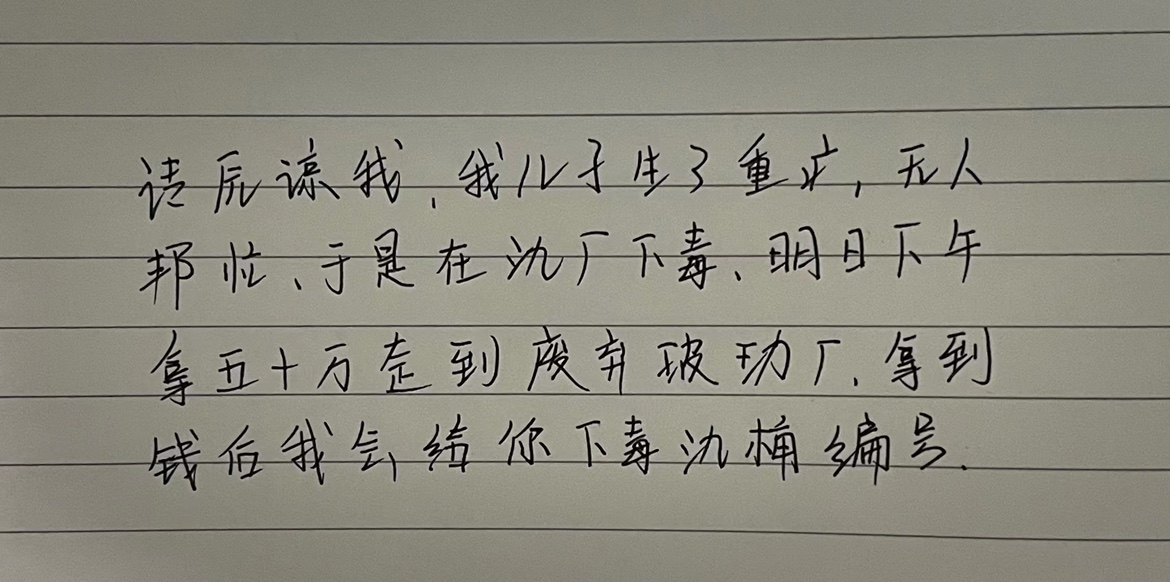 请原谅我,我儿子生了重病,无人
帮忙、于是在沈厂下毒、明日下午
拿五十万走到废弃玻璃厂、拿到
钱后我会给你下毒沈桶编号.